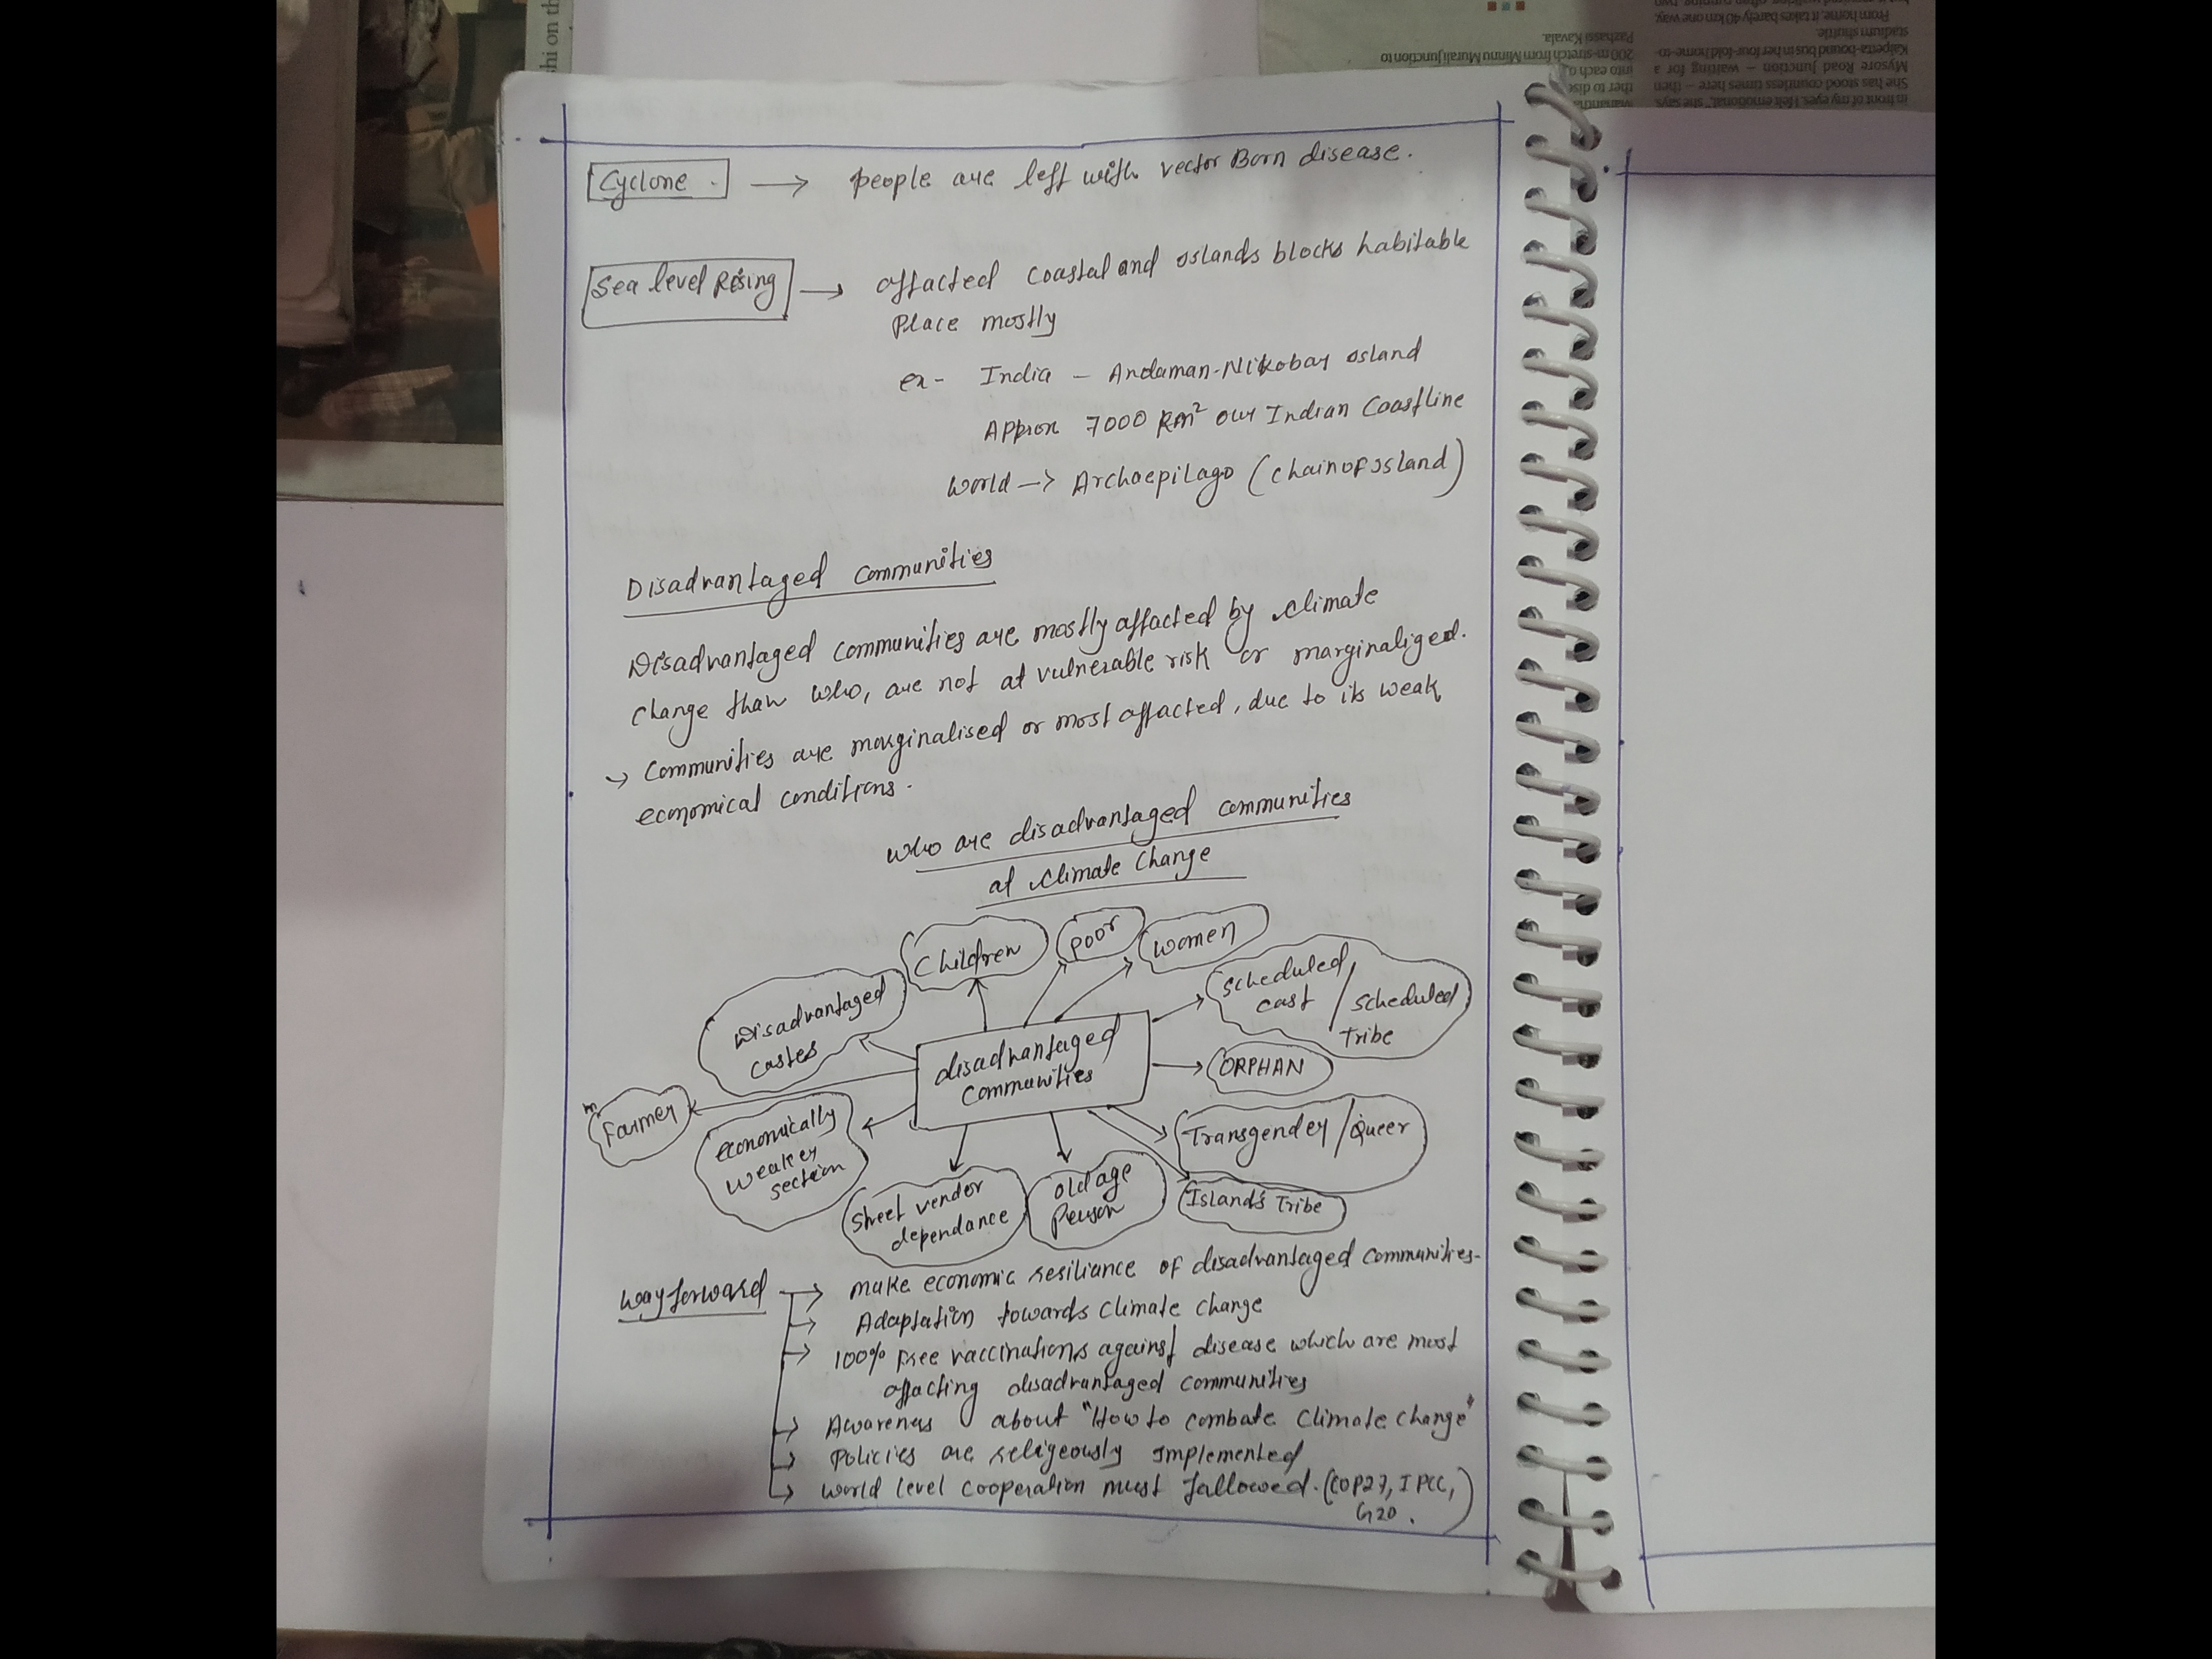 shi on th
in front of my eyes. I felt emotional," she says.
She has stood countless times here – then
Mysore Road Junction – waiting for a
Kalpetta-bound bus in her four-fold home-to-
stadium shuttle.
From home, it takes barely 40 km one way,
ther to dis
into each o
200 m-stretch from Minnu Murali junction to
Pazhassi Kavala.
Cyclone. → people are left with vector Born disease.
Sea level Rising → affacted Coastal and Islands blocks habitable
Place mostly
ex- India - Andaman-Nikobar Island
Approx 7000 km² our Indian Coastline
World → Archaepilago (chain of Island)
Disadvantaged Communities
Disadvantaged communities are mostly affacted by climate
change than who, are not at vulnerable risk or marginaliged.
→ Communities are marginalised or most affacted, due to its weak
economical conditions.
Who are disadvantaged communities
at climate change
Children
poor
women
Scheduled cast / Scheduled Tribe
Disadvantaged castes
disadvantaged Communities
ORPHAN
Farmer
economically weaker section
Transgender/Queer
Street vendor dependance
old age Person
Islands Tribe
Way forward → make economic resiliance of disadvantaged communities-
→ Adaptation towards climate change
→ 100% free vaccinations against disease which are most
affacting disadvantaged communities
→ Awareness about "How to combate climate change"
→ Policies are religeously implemented
→ World level cooperation must fallowed. (COP27, IPCC,
G20.)